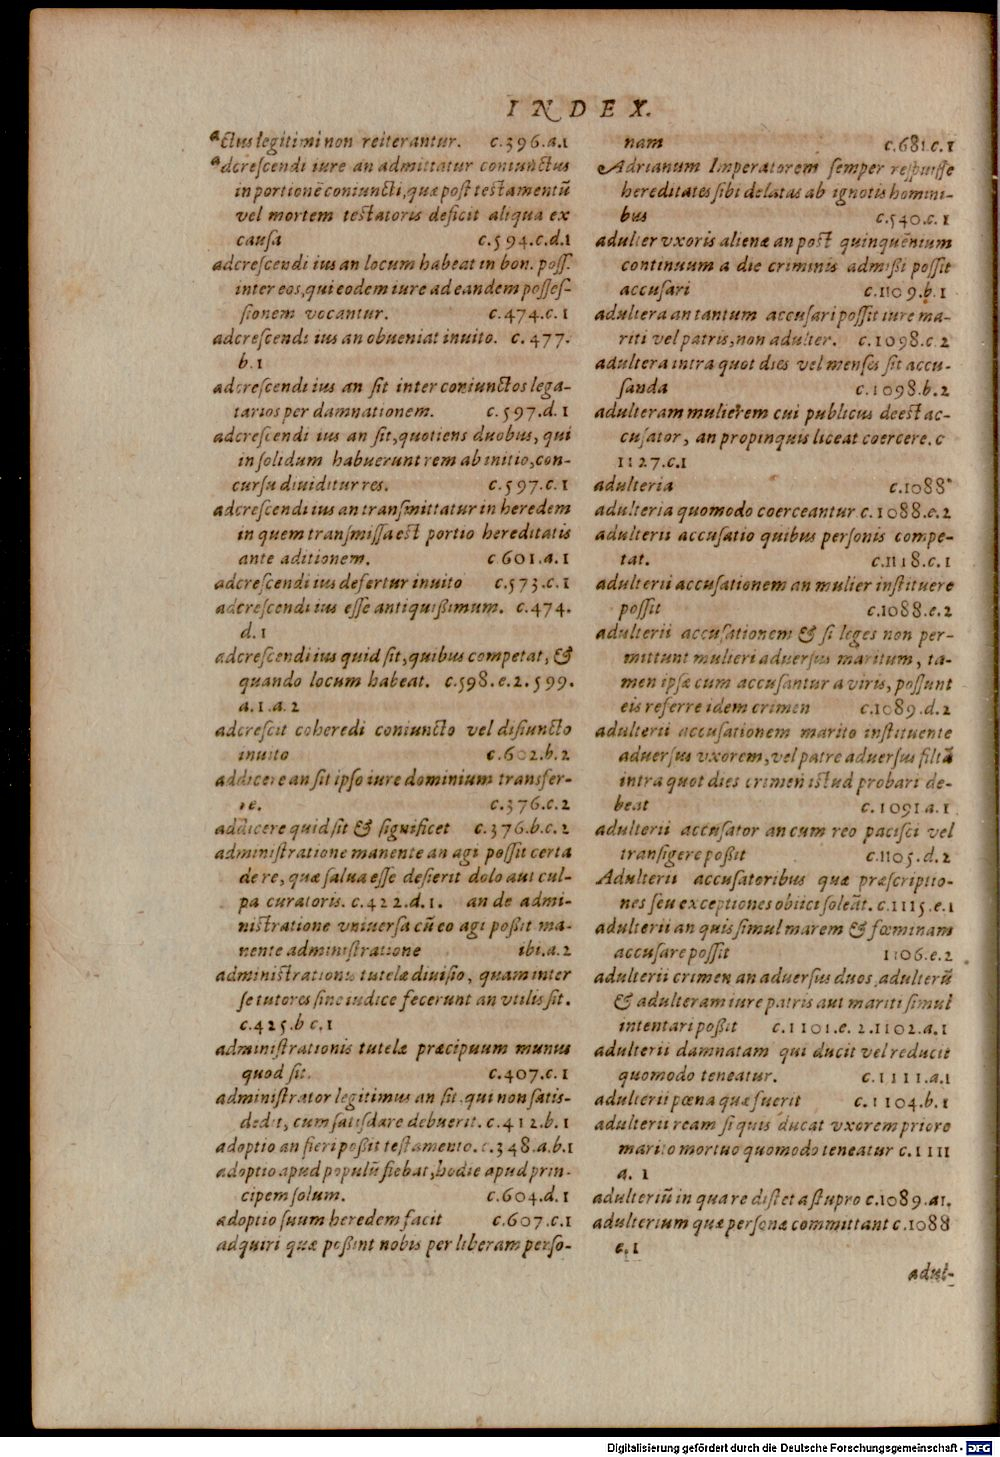 INDEX.
actus legitimi non reiterantur. c.396.a.1
adcrescendi iure an admittatur coniunctus
in portionē coniuncti, quæ post testamentū
vel mortem testatoris deficit aliqua ex
causa c.594.c.d.1
adcrescendi ius an locum habeat in bon. poss.
inter eos, qui eodem iure ad eandem posses-
sionem vocantur. c.474.c.1
adcrescendi ius an obueniat inuito. c.477.
b.1
adcrescendi ius an sit inter coniunctos lega-
tarios per damnationem. c.597.d.1
adcrescendi ius an sit, quotiens duobus, qui
in solidum habuerunt rem ab initio, con-
cursu diuiditur res. c.597.c.1
adcrescendi ius an transmittatur in heredem
in quem transmissa est portio hereditatis
ante aditionem. c 601.a.1
adcrescendi ius defertur inuito c.573.c.1
adcrescendi ius esse antiquißimum. c.474.
d.1
adcrescendi ius quid sit, quibus competat, &
quando locum habeat. c.598.e.2.599.
a.1.a.2
adcrescit coheredi coniuncto vel disiuncto
inuito c.602.b.2
addicere an sit ipso iure dominium transfer-
re. c.376.c.2
addicere quid sit & significet c.376.b.c.2
administratione manente an agi possit certa
de re, quæ salua esse desierit dolo aut cul-
pa curatoris. c.422.d.1. an de admi-
nistratione vniuersa cū eo agi poßit ma-
nente administratione ibi.a.2
administrationis tutelæ diuisio, quam inter
se tutores sine iudice fecerunt an vtilis sit.
c.425.b c.1
administrationis tutelæ præcipuum munus
quod sit. c.407.c.1
administrator legitimus an sit, qui non satis-
dedit, cum satisdare debuerit. c.412.b.1
adoptio an fieri poßit testamento. c.348.a.b.1
adoptio apud populū fiebat, hodie apud prin-
cipem solum. c.604.d.1
adoptio suum heredem facit c.607.c.1
adquiri quæ poßint nobis per liberam perso-
nam c.681.c.1
Adrianum Imperatorem semper respuisse
hereditates sibi delatas ab ignotis homini-
bus c.540.c.1
adulter vxoris alienæ an post quinquēnium
continuum a die criminis admißi possit
accusari c.1109.b.1
adultera an tantum accusari possit iure ma-
riti vel patris, non adulter. c.1098.c.2
adultera intra quot dies vel menses sit accu-
sanda c.1098.b.2
adulteram mulierem cui publicus deest ac-
cusator, an propinquis liceat coercere. c
1127.c.1
adulteria c.1088
adulteria quomodo coerceantur c.1088.e.2
adulterii accusatio quibus personis compe-
tat. c.1118.c.1
adulterii accusationem an mulier instituere
possit c.1088.e.2
adulterii accusationem & si leges non per-
mittunt mulieri aduersus maritum, ta-
men ipsæ cum accusantur a viris, possunt
eis referre idem crimen c.1089.d.2
adulterii accusationem marito instituente
aduersus vxorem, vel patre aduersus filiā
intra quot dies crimen istud probari de-
beat c.1091 a.1
adulterii accusator an cum reo pacisci vel
transigere poßit c.1105.d.2
Adulterii accusatoribus quæ præscriptio-
nes seu exceptiones obiici soleāt. c.1115.e.1
adulterii an quis simul marem & fœminam
accusare possit 1106.e.2
adulterii crimen an aduersus duos, adulterū
& adulteram iure patris aut mariti simul
intentari poßit c.1101.e.2.1102.a.1
adulterii damnatam qui ducit vel reducit
quomodo teneatur. c.1111.a.1
adulterii pœna quæ fuerit c.1104.b.1
adulterii ream si quis ducat vxorem priore
marito mortuo quomodo teneatur c.1111
a. 1
adulteriū in qua re distet a stupro c.1089.a1.
adulterium quæ personæ committant c.1088
e.1
adul-
Digitalisierung gefördert durch die Deutsche Forschungsgemeinschaft - DFG